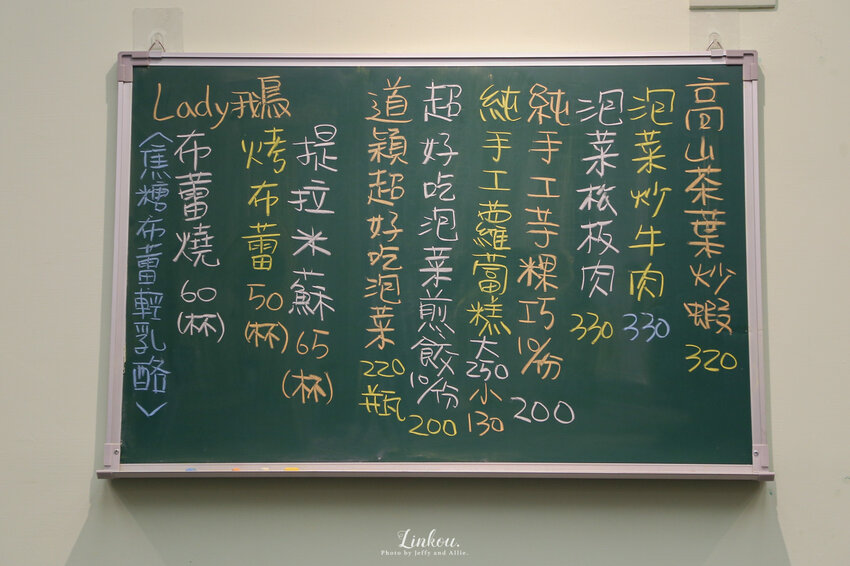 高山茶葉炒蝦 320
泡菜炒牛肉 330
泡菜松板肉 330
純手工芋粿巧10/份 200
純手工蘿蔔糕 大250 小130
超好吃泡菜煎餃10/份 200
道穎超好吃泡菜 220瓶
Lady鵝
提拉米蘇 65(杯)
烤布蕾 50(杯)
布蕾燒 60(杯)
<焦糖布蕾輕乳酪>
Linkou.
Photo by Jeffy and Allie.